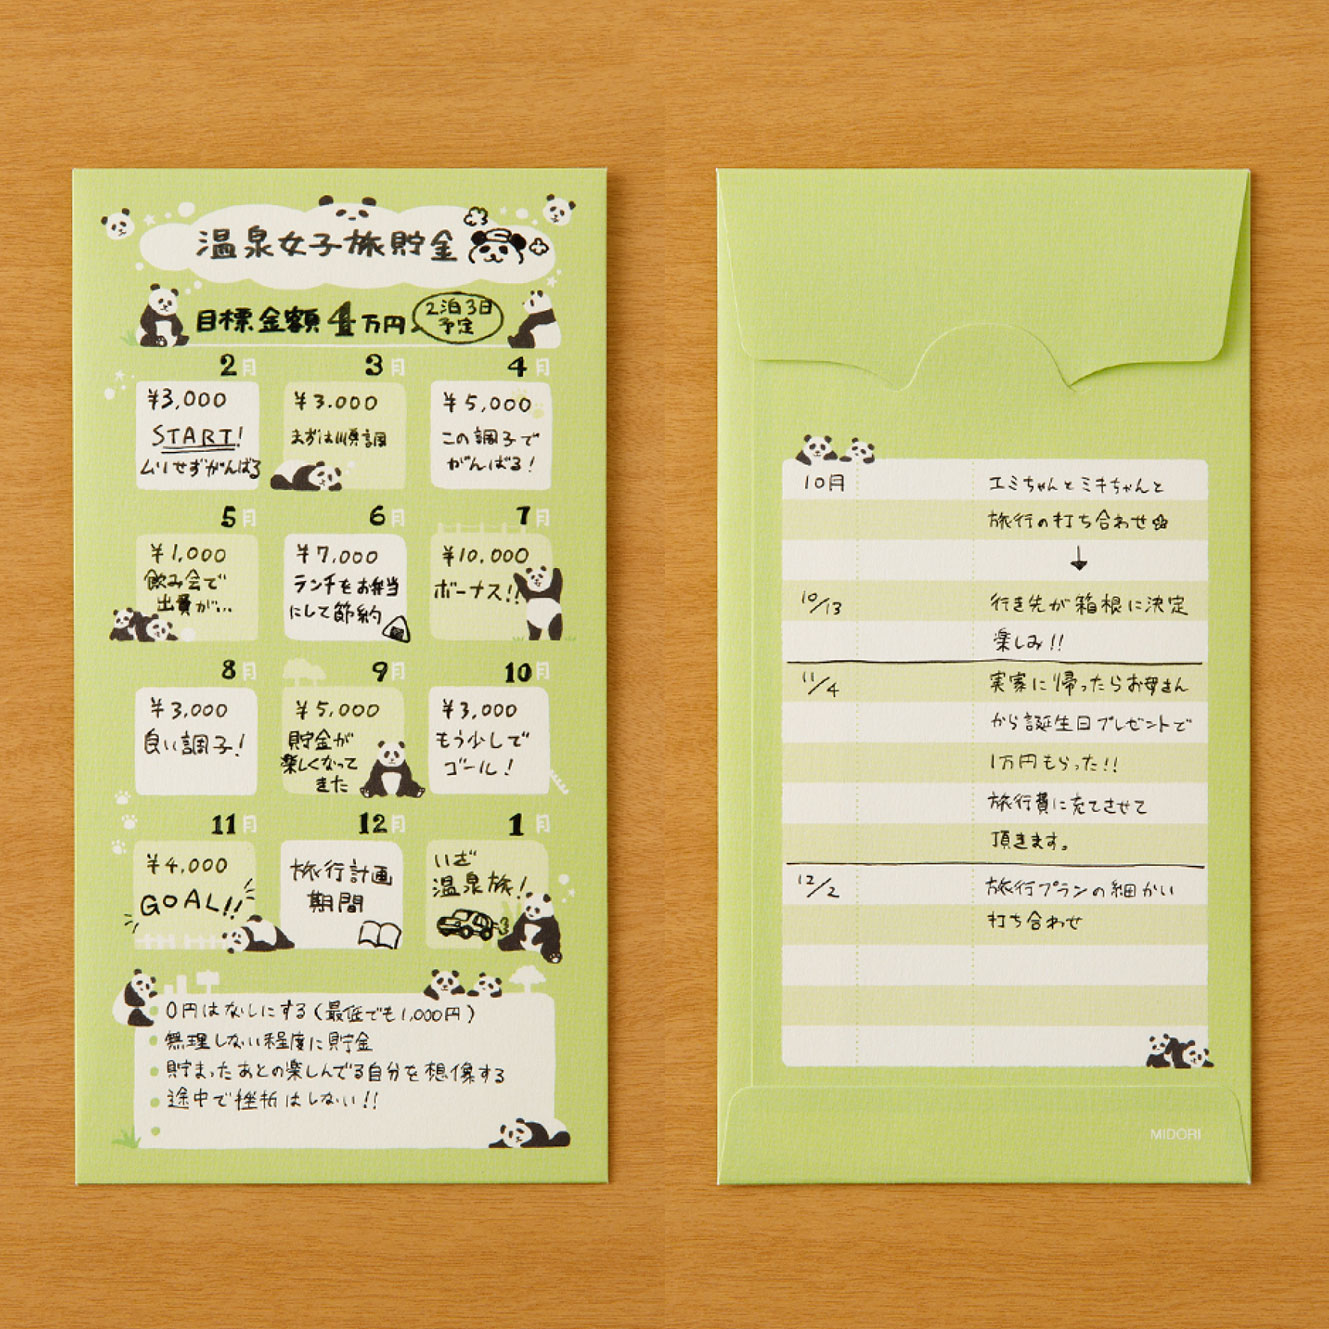 温泉女子旅貯金
目標金額4万円 2泊3日
予定
2月 3月 4月
¥3,000
START!
ムリせずがんばる
¥3.000
まずは順調
¥5,000
この調子で
がんばる!
5月 6月 7月
¥1,000
飲み会で
出費が…
¥7,000
ランチをお弁当
にして節約
¥10,000
ボーナス!!
8月 9月 10月
¥3,000
良い調子!
¥5,000
貯金が
楽しくなって
きた
¥3,000
もう少しで
ゴール!
11月 12月 1月
¥4,000
GOAL!!
旅行計画
期間
いざ
温泉旅!
0円はなしにする(最低でも1,000円)
無理しない程度に貯金
貯まったあとの楽しんでる自分を想像する
途中で挫折はしない!!
10月 エミちゃんとミキちゃんと
旅行の打ち合わせ
↓
10/13 行き先が箱根に決定
楽しみ!!
11/4 実家に帰ったらお母さん
から誕生日プレゼントで
1万円もらった!!
旅行費に充てさせて
頂きます。
12/2 旅行プランの細かい
打ち合わせ
MIDORI